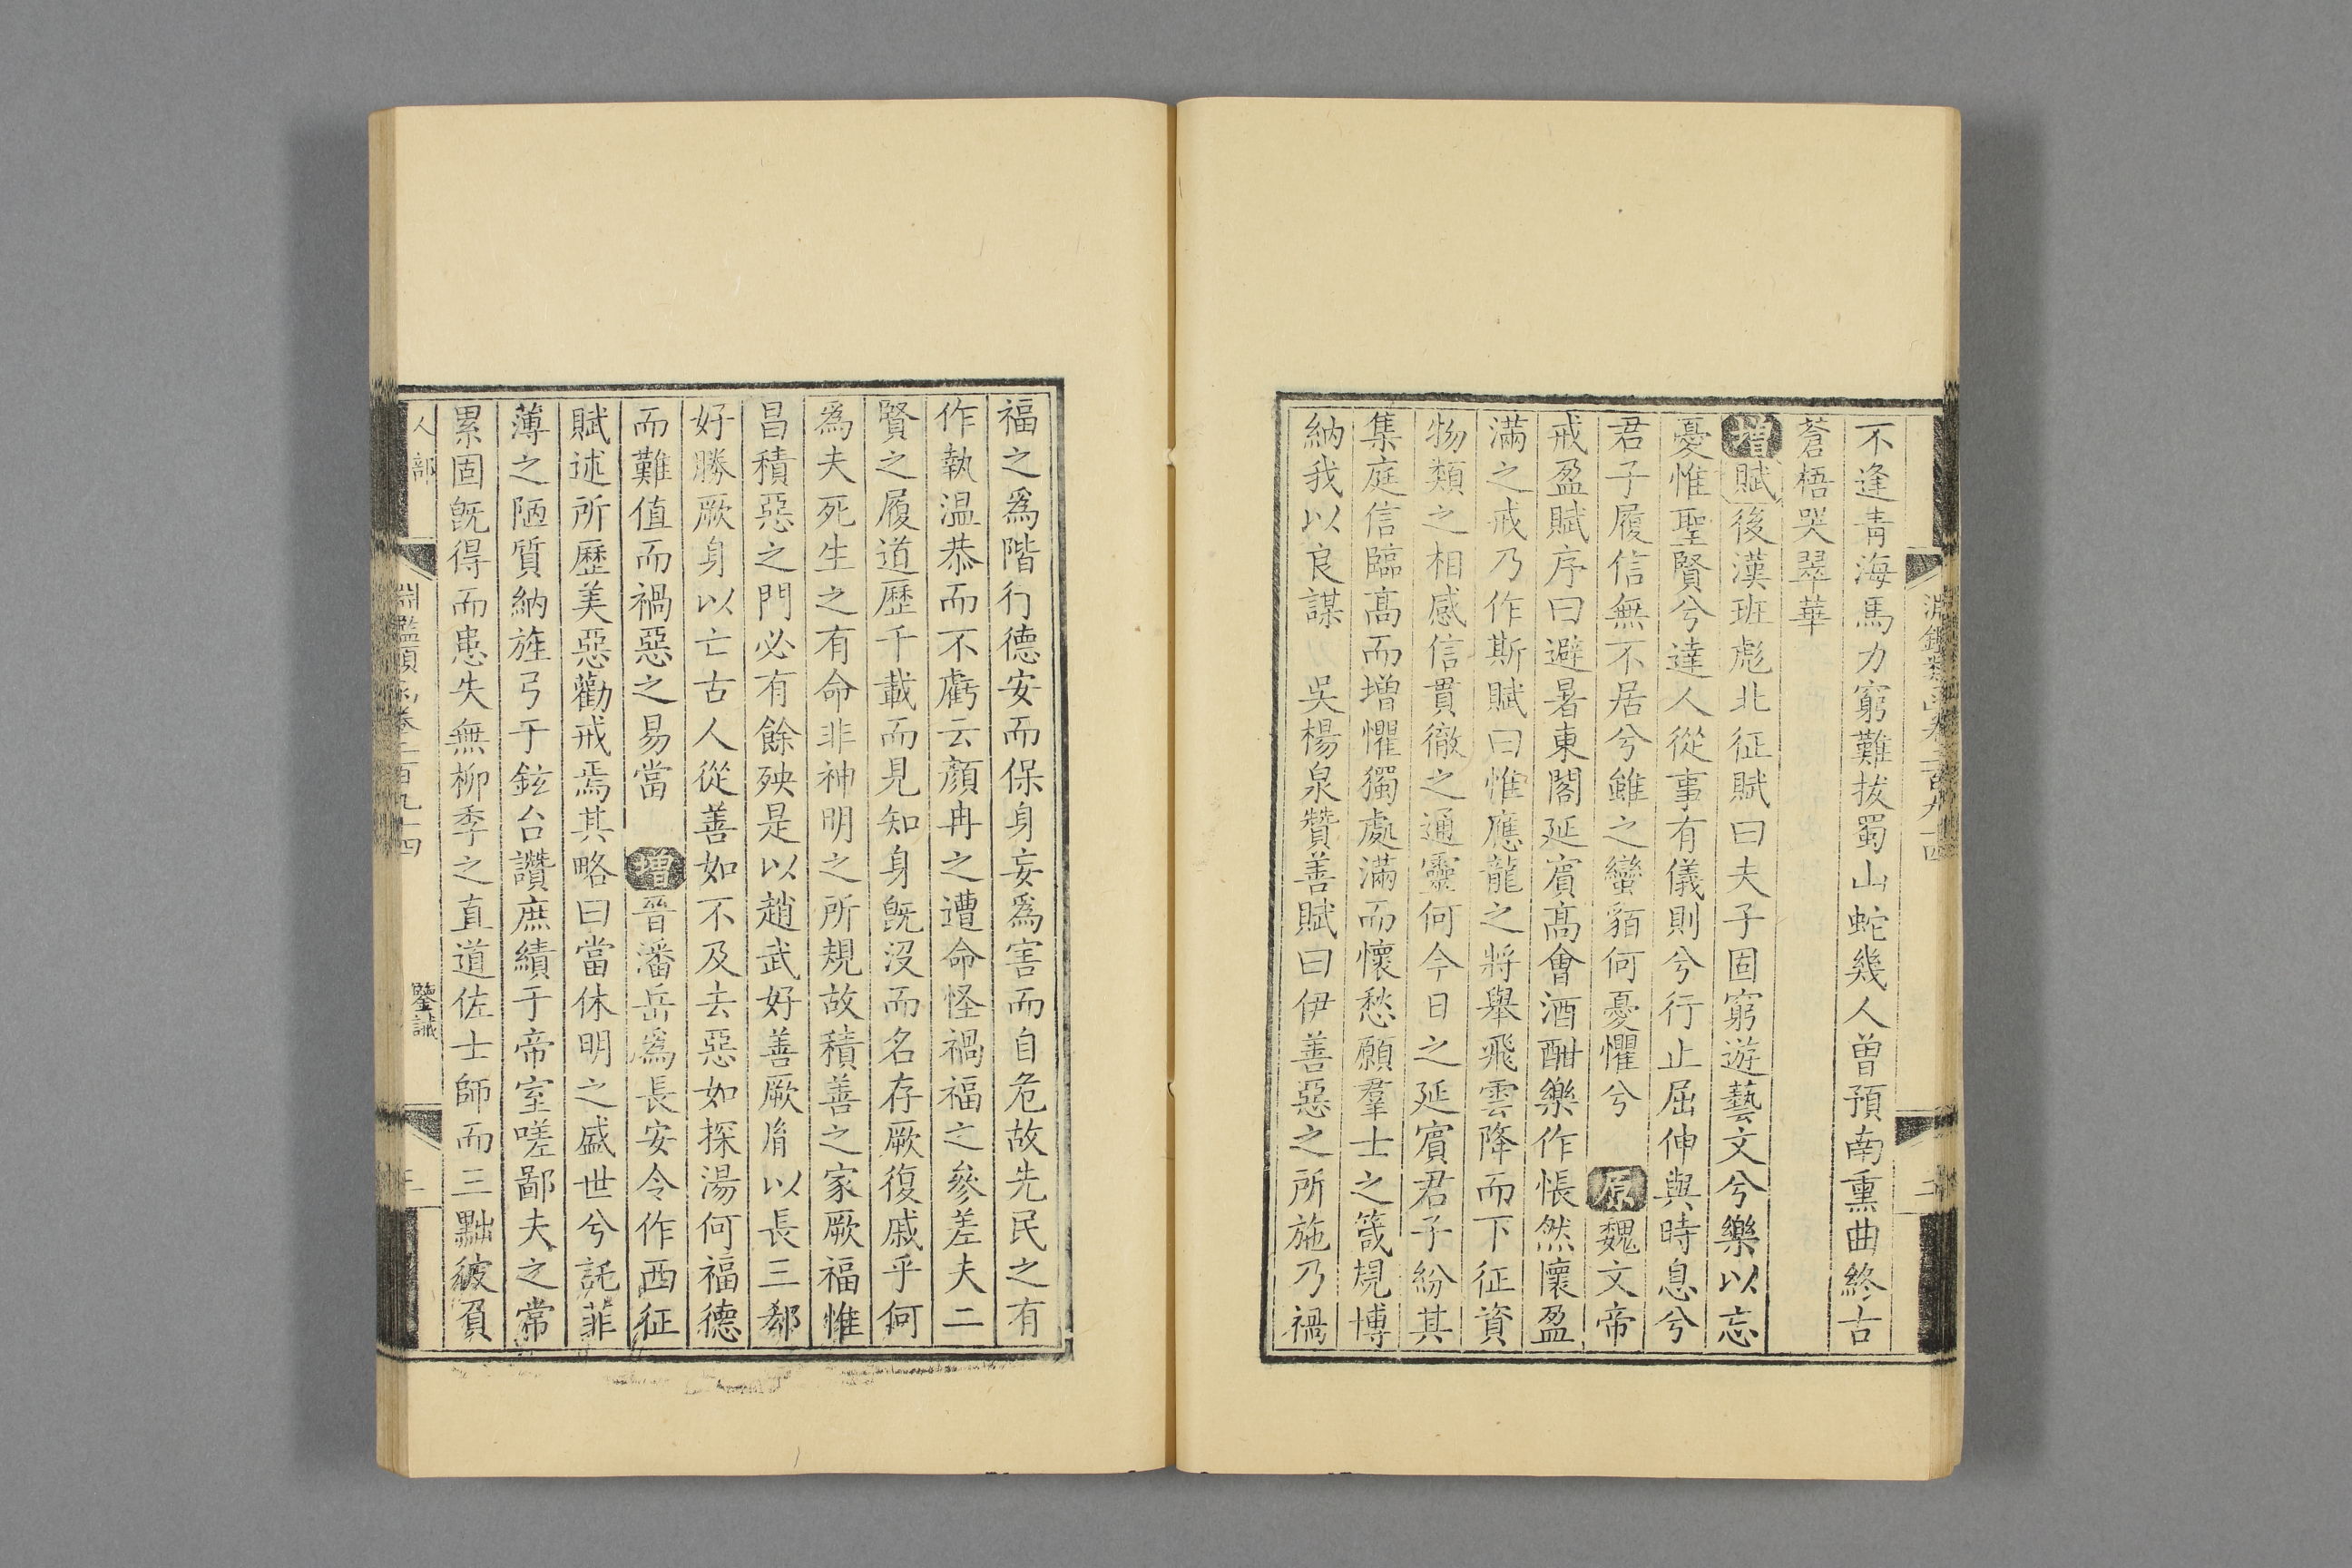 不逢青海馬力窮難拔蜀山蛇幾人曾預南熏曲終古
蒼梧哭翠華
增賦後漢班彪北征賦曰夫子固窮遊藝文兮樂以忘
憂惟聖賢兮達人從事有儀則兮行止屈伸與時息兮
君子履信無不居兮雖之蠻貊何憂懼兮 原魏文帝
戒盈賦序曰避暑東閣延賓高會酒酣樂作悵然懷盈
滿之戒乃作斯賦曰惟應龍之將舉飛雲降而下征資
物類之相感信貫徹之通靈何今日之延賓君子紛其
集庭信臨高而增懼獨處滿而懷愁願羣士之箴規博
納我以良謀 吳楊泉贊善賦曰伊善惡之所施乃禍
福之爲階行德安而保身妄爲害而自危故先民之有
作執温恭而不虧云顏冉之遭命怪禍福之參差夫二
賢之履道歷千載而見知身旣没而名存厥復戚乎何
爲夫死生之有命非神明之所規故積善之家厥福惟
昌積惡之門必有餘殃是以趙武好善厥胤以長三郤
好勝厥身以亡古人從善如不及去惡如探湯何福德
而難值而禍惡之易當 增晉潘岳爲長安令作西征
賦述所歷美惡勸戒焉其略曰當休明之盛世兮託菲
薄之陋質納旌弓于鉉台讚庶績于帝室嗟鄙夫之常
累固旣得而患失無柳季之直道佐士師而三黜彼負
人部
鑒誡